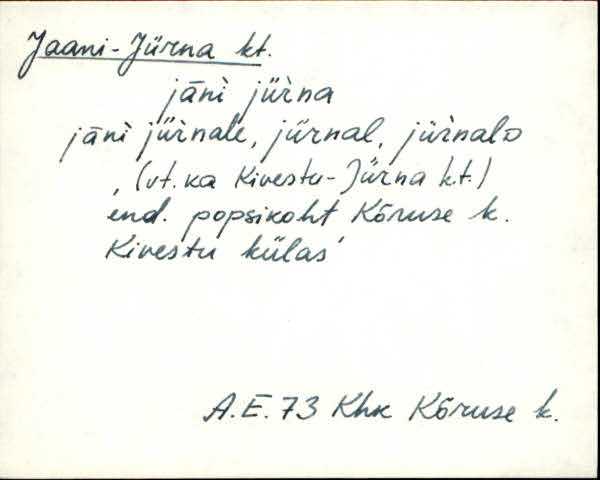 Jaani-Jürna kt.
jāni jürna
jāni jürnale, jürnal, jürnalo
, (vt. ka Kivestu-Jürna kt.)
end. popsikoht Kõruse k.
Kivestu külas'
A.E. 73 Khk Kõruse k.